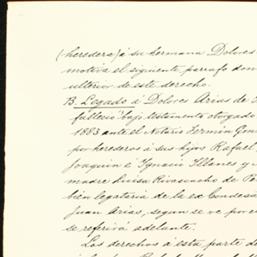 (heredera) á su hermana Dolores
motiva el siguiente parrafo don
ulterior de este derecho.
B. Legado á Dolores Arias de
falleció bajo testamento otorgado
1883 ante el Notario Fermin Gon
por herederos á sus hijos Rafael,
Joaquin é Ignacio Illanes y
madre Luisa de
bien legataria de la ex Condesa
Juan Arias, segun se ve por
se referirá adelante.
Los derechos á esta parte d